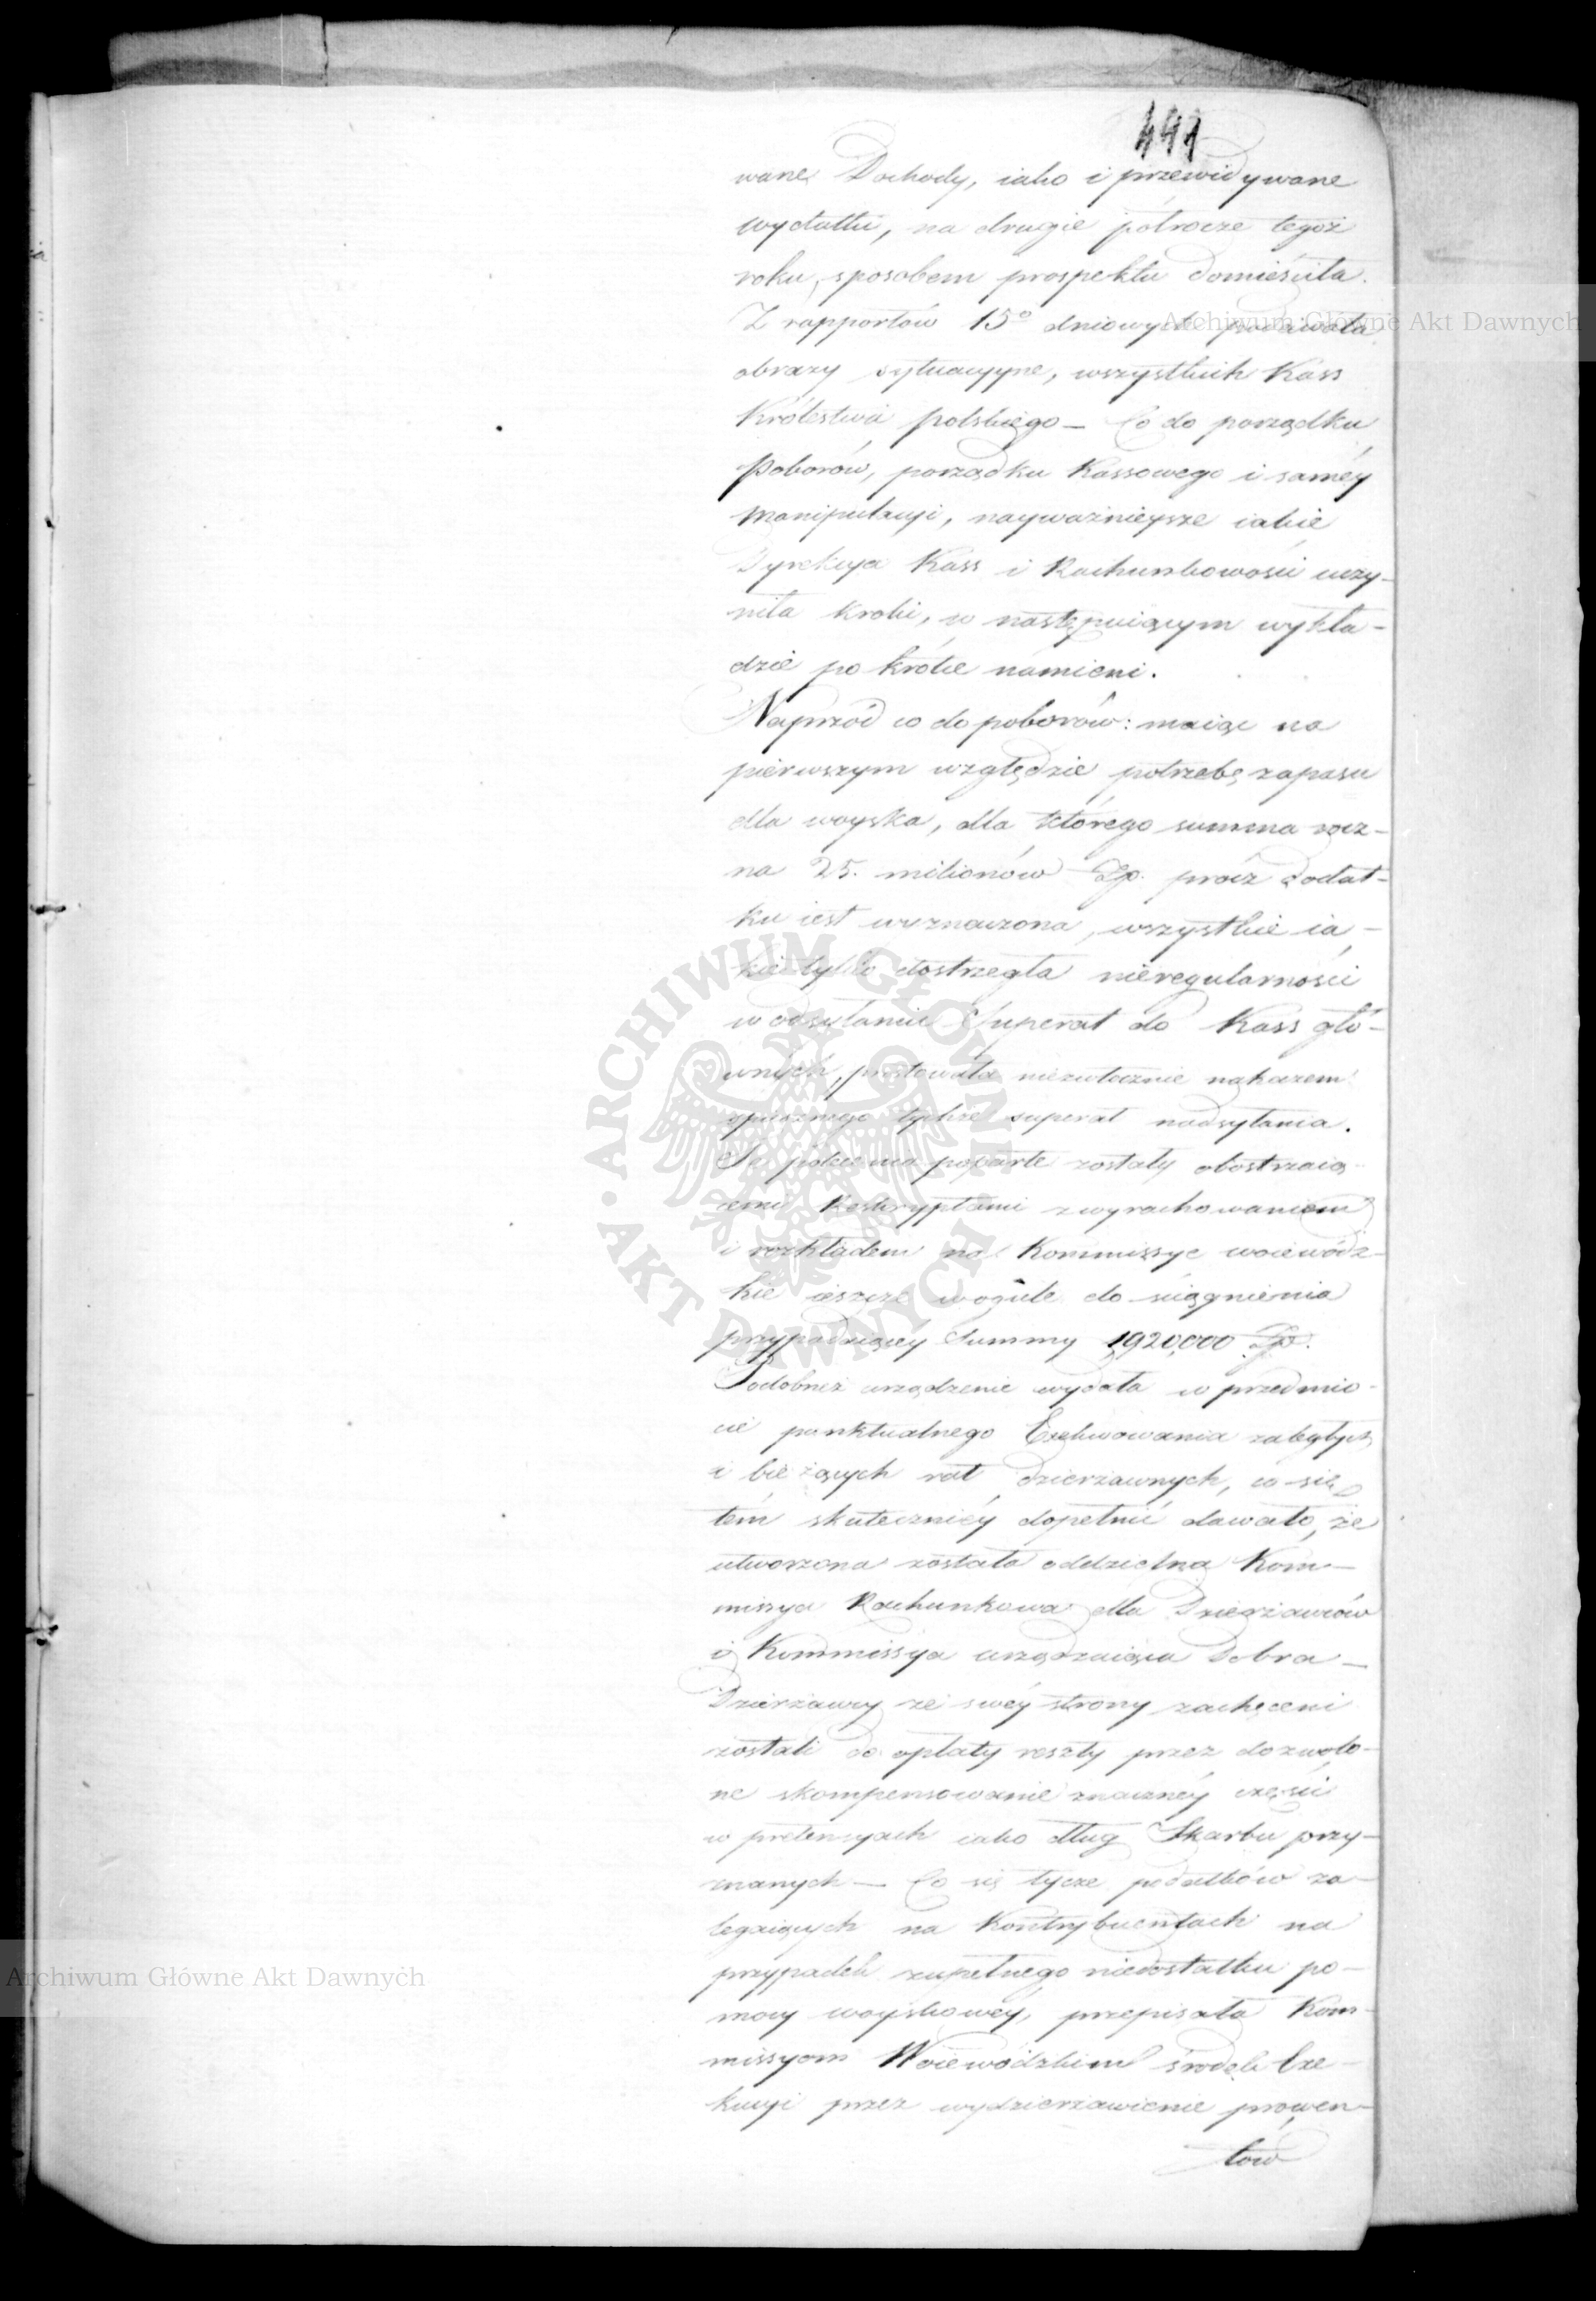 491
wane Dochody, iako i przewidywane
wydatki, na drugie półrocze tegoż
roku, sposobem prospektu domieściła.
Z rapportów 15º dniowych podawała
obrazy sytuacyjne, wszystkich Kass
Królestwa polskiego — Co do porządku
Poborów, porządku Kassowego i saméy
Manipulacyi, nayważnieysze iakie
Dyrekcya Kass i Rachunkowości uczy-
niła kroki, w następuiącym wykła-
dzie po krótce námieni.
Naprzód co do poborów: maiąc na
pierwszym względzie potrzebę zapasu
dla woyska, dla którego summa rocz-
na 25. milionów Zp. prócz dodat-
ku iest wyznaczona, wszystkie ia-
kie tylko dostrzegła nieregularności
w odsyłaniu Superat do Kass głó-
wnych, prostowała niezwłocznie nakazem
spiesznego tychże superat nadsyłania.
Te polecenia poparte zostały obostrzaią-
cemi Reskryptami z wyrachowaniem
i rozkładem na Kommissye woiewódz-
kie ieszcze w ogóle do ściągnienia
przypadaiącéy Summy 1,920,000 Zp.
Podobneż urządzenie wydała w przedmio-
cie punktualnego Exekwowania zaległych
i bieżących rat dzierżawnych, co się
tém skuteczniéy dopełnić dawało, że
utworzona została oddzielna Kom-
missya Rachunkowa dla Dzierżawców
i Kommissya urządzaiąca Dobra —
Dzierżawcy ze swéy strony zachęceni
zostali do opłaty reszty przez dozwolo-
ne skompensowanie znacznéy części
w pretensyach iako dług Skarbu przy-
znanych — Co się tycze podatków za-
legaiących na Kontrybuentach na
przypadek zupełnego niedostatku po-
mocy woyskowéy, przepisała Kom-
missyom Woiewódzkim środek Exe-
kucyi przez wydzierżawienie prowen-
tów
Archiwum Główne Akt Dawnych
Archiwum Główne Akt Dawnych
ARCHIWUM GŁÓWNE • AKT DAWNYCH •